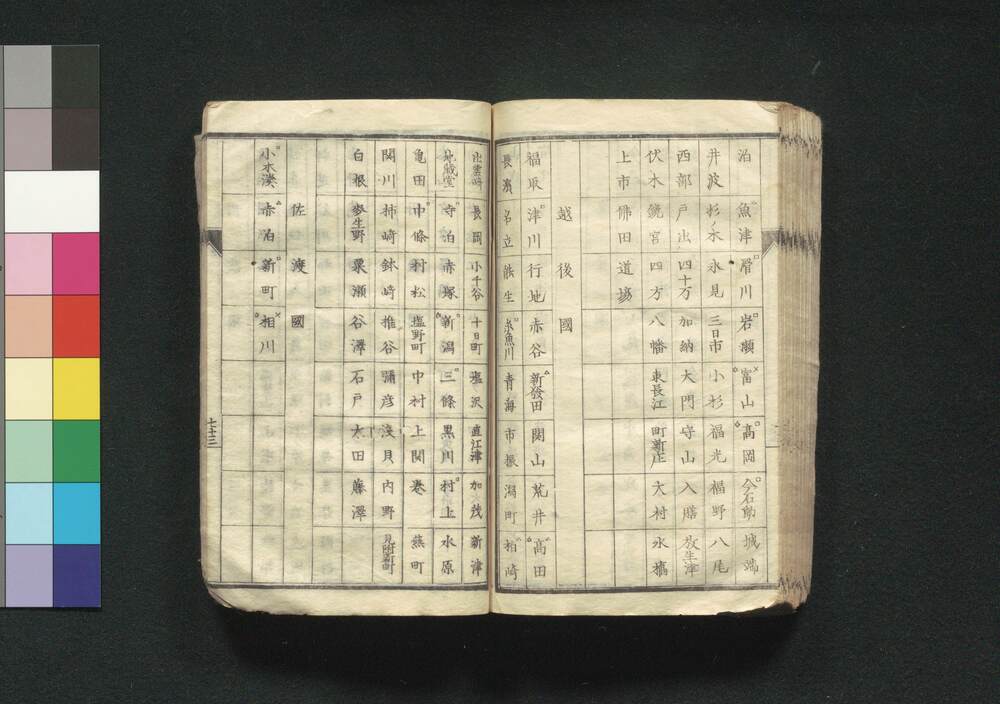 泊 魚津 滑川 岩瀬 富山 高岡 今石動 城端
井波 杉木 氷見 三日市 小杉 福光 福野 八尾
西部 戸出 四十万 加納 大門 守山 入膳 放生津
伏木 鏡宮 四方 八幡 東長江 町新庄 大村 水橋
上市 佛田 道場
越後國
福取 津川 行地 赤谷 新發田 関山 荒井 高田
長濱 名立 能生 糸魚川 青海 市振 潟町 柏崎
出雲崎 長岡 小千谷 十日町 塩沢 直江津 加茂 新津
地蔵堂 寺泊 赤塚 新潟 三條 黒川 村上 水原
亀田 中條 村松 塩野町 中村 上関 巻 燕町
関川 柿崎 鉢崎 椎谷 彌彦 浅貝 内野 見附新町
白根 麥生野 粟瀬 谷澤 石戸 太田 藤澤
佐渡國
小木湊 赤泊 新町 相川
七十三